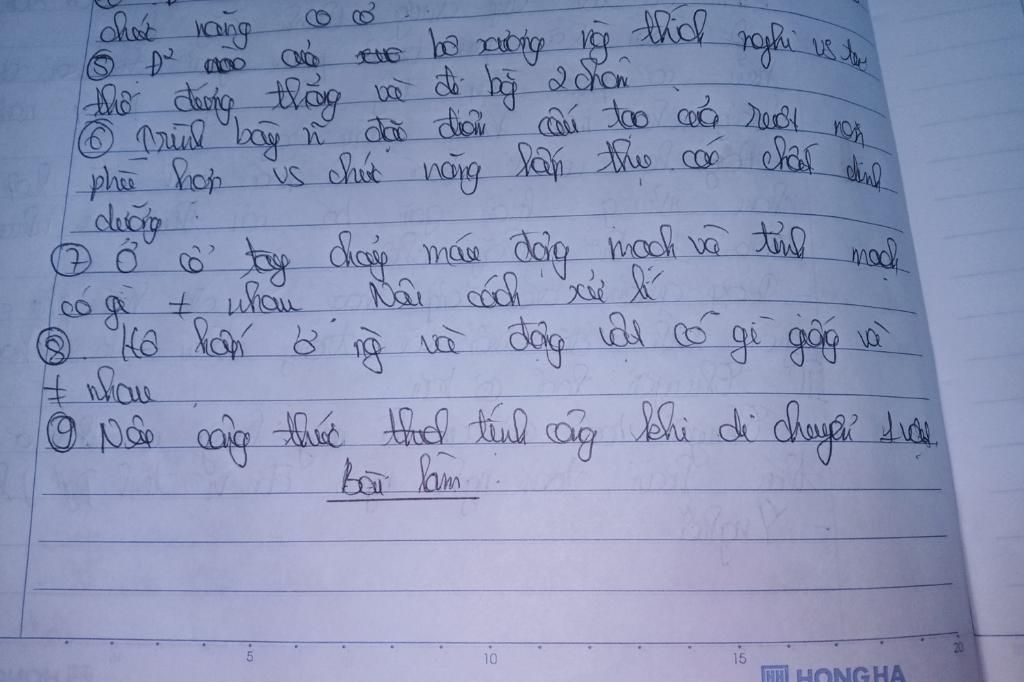 chức năng co cơ
⑤ Đ² của bộ xương ng thích nghi vs tư
thế đứng thẳng và đi bằng 2 chân
⑥ Trình bày n đặc điểm cấu tạo của ruột non
phù hợp vs chức năng hấp thụ các chất dinh
dưỡng.
⑦ Ở cổ tay chảy máu động mạch và tĩnh mạch
có gì ≠ nhau. Nêu cách xử lí
⑧. Hô hấp ở ng và động vật có gì giống và
≠ nhau
⑨ Nêu công thức tính công khi di chuyển
Bài làm.
5 10 15 20
HH HONG HA